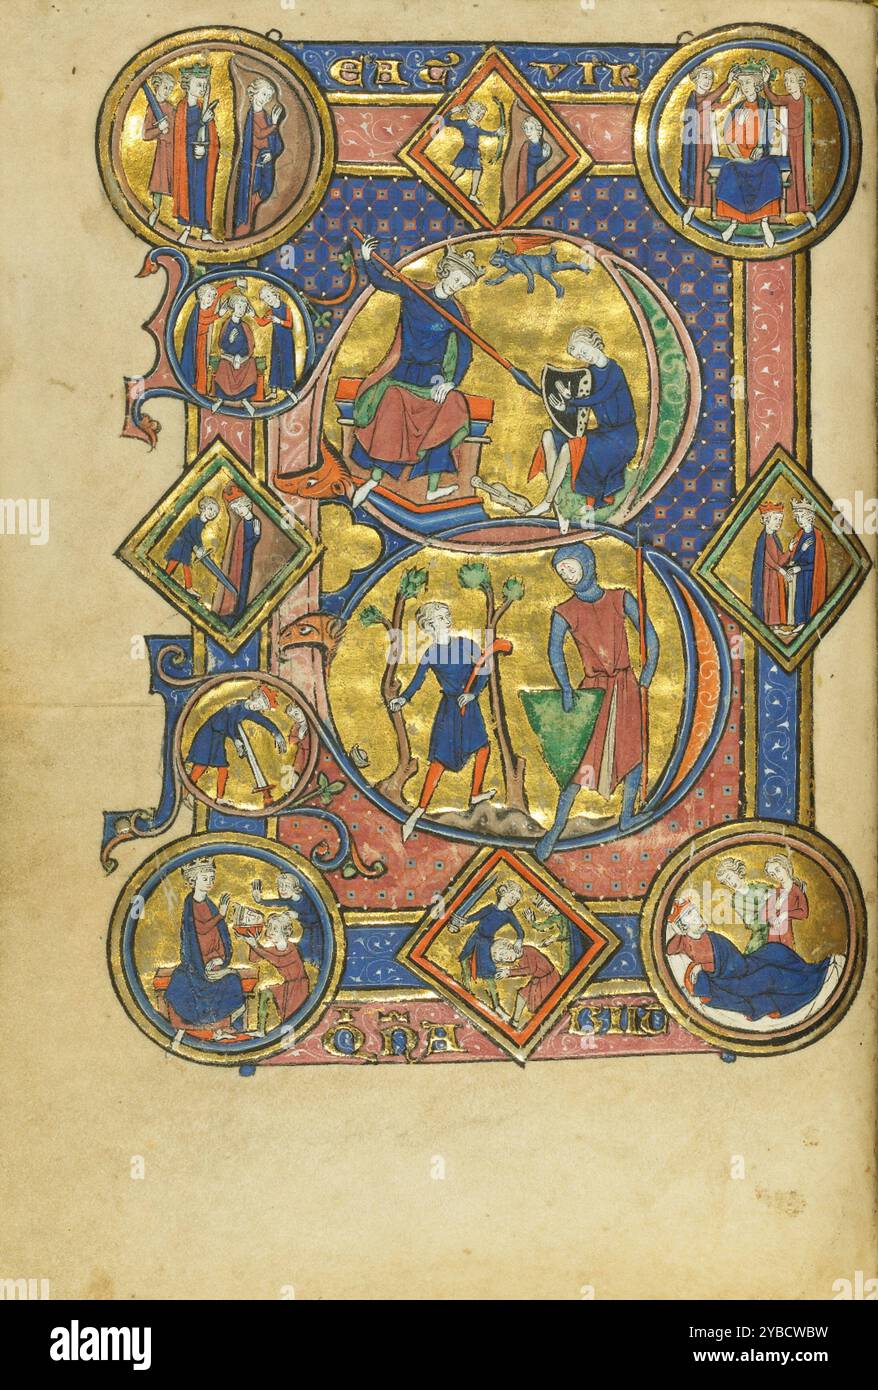 EATꝰ VIR
Qⁱ N̄ A BIIT
a
alamy
a
alamy
alamy
Image ID: 2YBCWBW
www.alamy.com